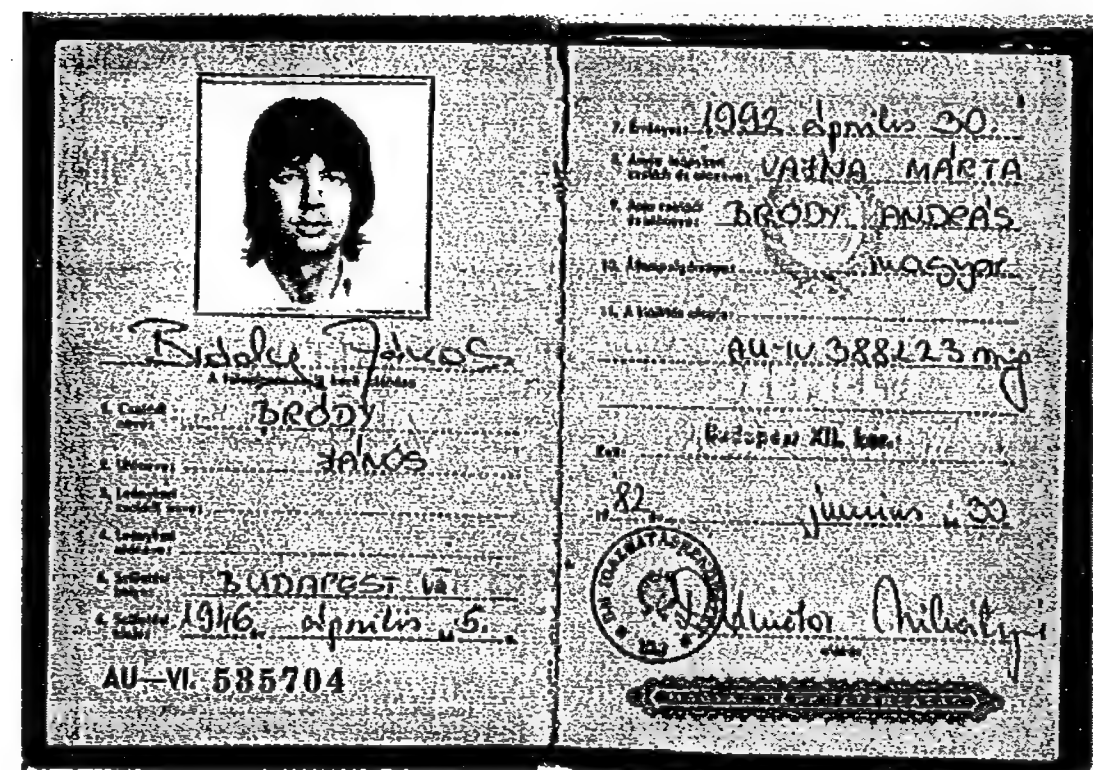 Bródy János
A
1. Családi neve: BRÓDY
2. Utóneve: JÁNOS
3. Leánykori családi neve:
4. Leánykori utóneve:
5. Születési helye: BUDAPEST
6. Születési ideje: 1946. április 5.
AU—VI. 535704
7. Érvényes: 1992 április 30.
8. Anyja leánykori családi és utóneve: VAJNA MÁRTA
9. Apja családi és utóneve: BRÓDY ANDRÁS
10. Állampolgársága: magyar
11. A kiállítás alapja:
AU-IV. 388223
Kelt: Budapest XII. ker.
1982. június hó 30
aláírás